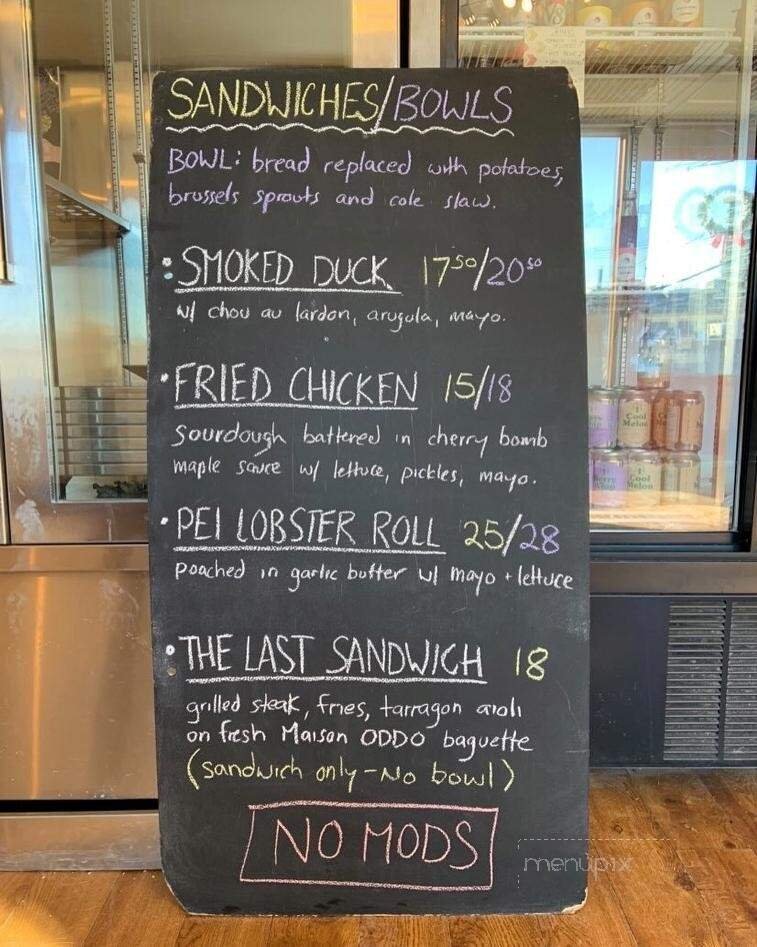 SANDWICHES/BOWLS
BOWL: bread replaced with potatoes,
brussels sprouts and cole slaw.
• SMOKED DUCK 17⁵⁰/20⁵⁰
w/ chou au lardon, arugula, mayo.
• FRIED CHICKEN 15/18
Sourdough battered in cherry bomb
maple sauce w/ lettuce, pickles, mayo.
• PEI LOBSTER ROLL 25/28
poached in garlic butter w/ mayo + lettuce
• THE LAST SANDWICH 18
grilled steak, fries, tarragon aioli
on fresh Maison ODDO baguette
(sandwich only - No bowl)
NO MODS
menupix
Cool
Melon
Cool
Melon